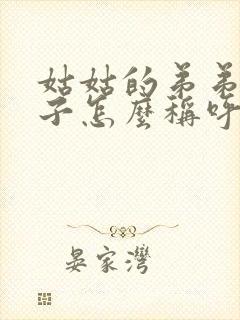 姑姑的弟弟
子怎麼稱呼
晏家灣